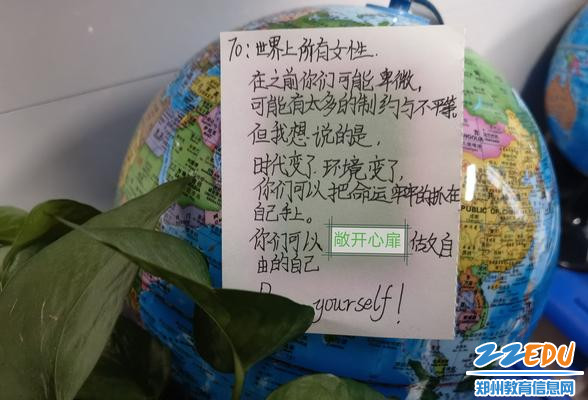 To：世界上所有女性.
在之前你们可能卑微,
可能有太多的制约与不平等.
但我想说的是,
时代变了.环境变了,
你们可以把命运牢牢的抓在
自己手上。
你们可以 敞开心扉 做自
由的自己
yourself!
ZZEDU
郑州教育信息网